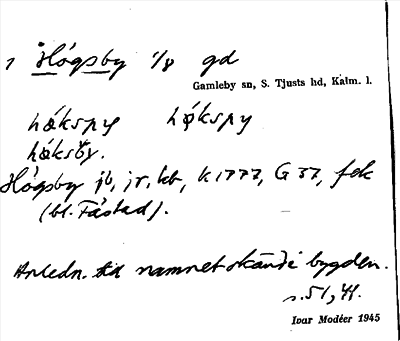 1 Högsby 1/8 gd
Gamleby sn, S. Tjusts hd, Kalm. l.
hǿkspy hǿkspy
høksby.
Högsby jb, jr, kb, K 1777, G 37, fek
(bl. Fåstad).
Anledn. till namnet okänd i bygden.
s. 51, 41.
Ivar Modéer 1945